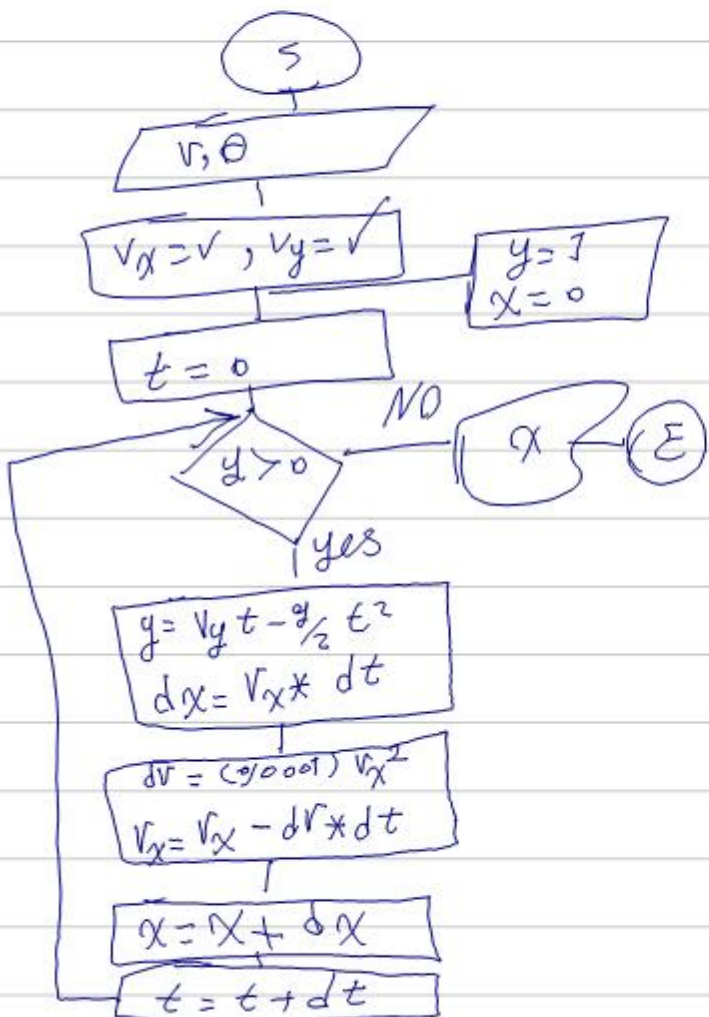 S
v, θ
Vx = √ , Vy = √
y = 1
x = 0
t = 0
y > 0
NO
x
E
yes
y = Vy t - g/2 t²
dx = Vx * dt
dv = (0/0001) Vx²
Vx = Vx - dV * dt
x = x + dx
t = t + dt